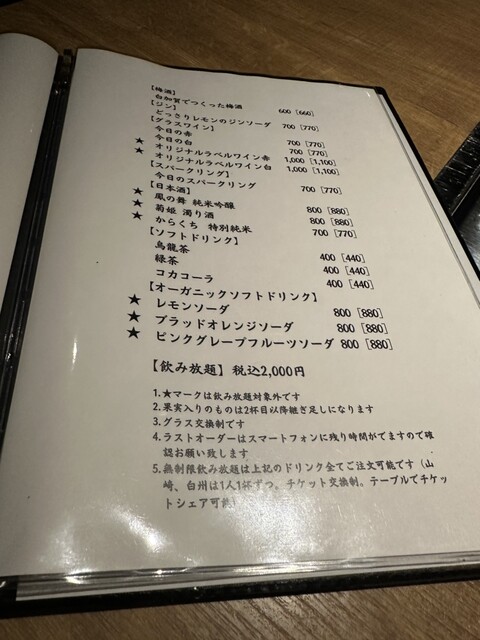 【梅酒】
白加賀でつくった梅酒 600 [660]
【ジン】
どっさりレモンのジンソーダ 700 [770]
【グラスワイン】
今日の赤 700 [770]
今日の白 700 [770]
★ オリジナルラベルワイン赤 1,000 [1,100]
★ オリジナルラベルワイン白 1,000 [1,100]
【スパークリング】
今日のスパークリング 700 [770]
【日本酒】
★ 鳳の舞 純米吟醸 800 [880]
★ 菊姫 濁り酒 800 [880]
★ からくち 特別純米 700 [770]
【ソフトドリンク】
烏龍茶 400 [440]
緑茶 400 [440]
コカコーラ 400 [440]
【オーガニックソフトドリンク】
★ レモンソーダ 800 [880]
★ ブラッドオレンジソーダ 800 [880]
★ ピンクグレープフルーツソーダ 800 [880]
【飲み放題】 税込2,000円
1.★マークは飲み放題対象外です
2.果実入りのものは2杯目以降継ぎ足しになります
3.グラス交換制です
4.ラストオーダーはスマートフォンに残り時間がでますので確
認お願い致します
5.無制限飲み放題は上記のドリンク全てご注文可能です（山
崎、白州は1人1杯ずつ。チケット交換制。テーブルでチケッ
トシェア可能）